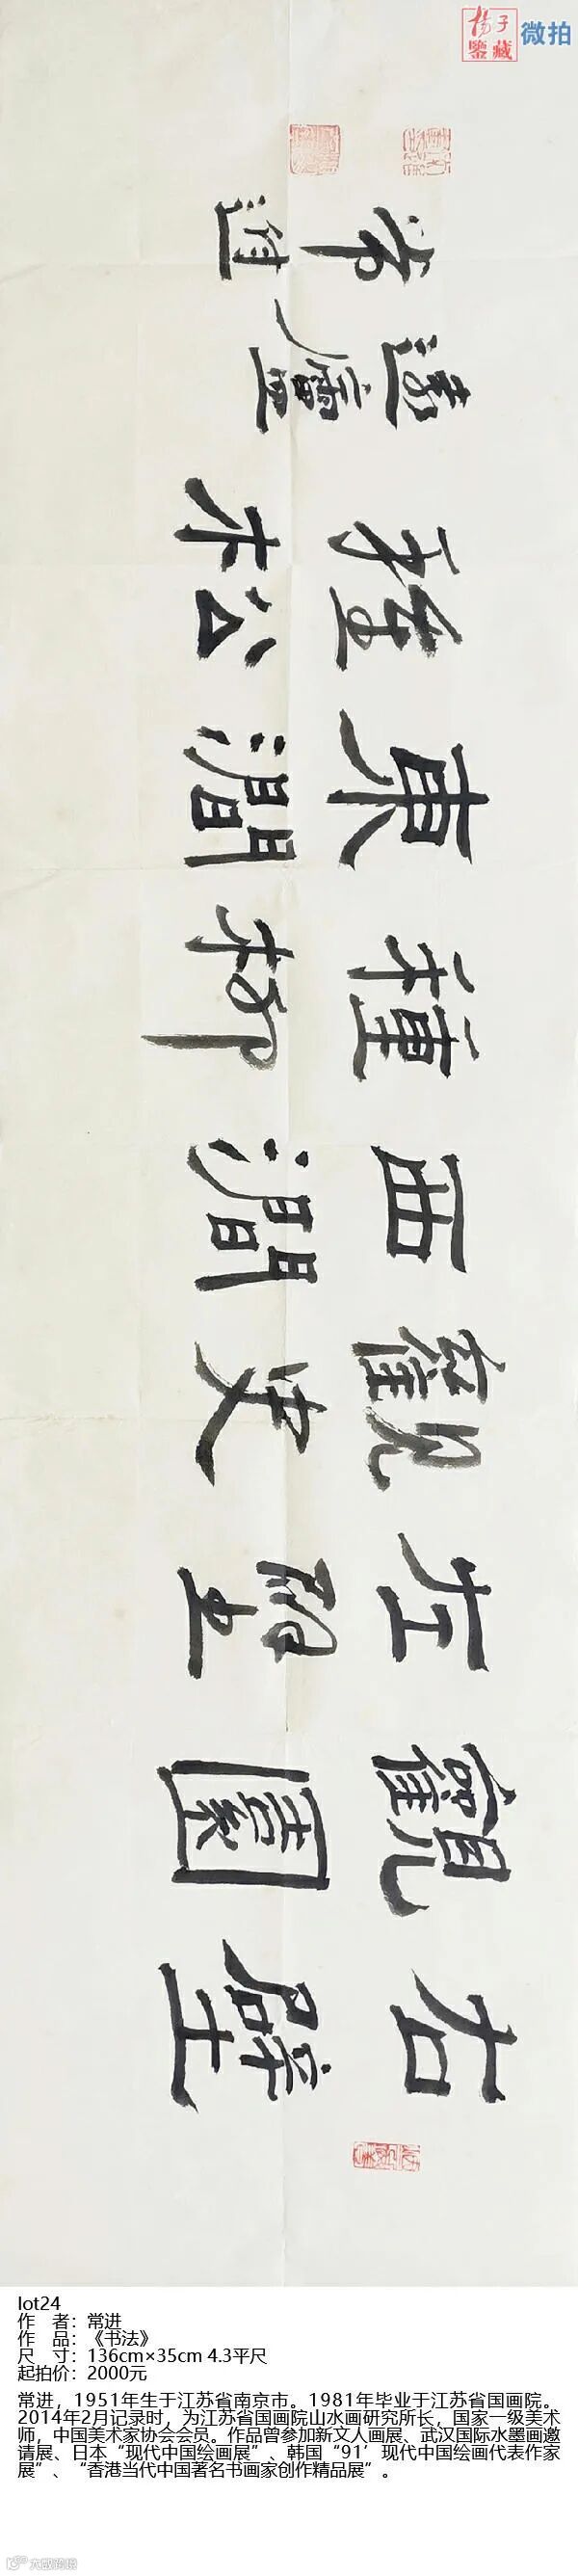 楊子
鑒藏
微拍
右壁
觀圖
左壁
觀史
西澗
種柳
東澗
種松
常進
lot24
作　者：常进
作　品：《书法》
尺　寸：136cm×35cm 4.3平尺
起拍价：2000元
常进，1951年生于江苏省南京市。1981年毕业于江苏省国画院。
2014年2月记录时，为江苏省国画院山水画研究所长，国家一级美术
师，中国美术家协会会员。作品曾参加新文人画展、武汉国际水墨画邀
请展、日本“现代中国绘画展”、韩国“91’现代中国绘画代表作家
展”、“香港当代中国著名书画家创作精品展”。